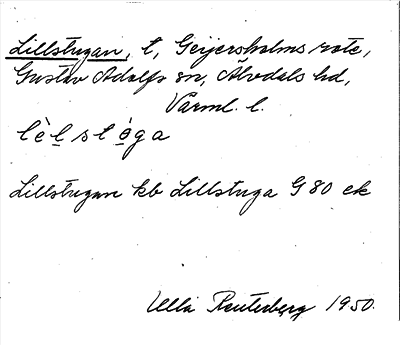 Lillstugan, t, Geijersholms rote,
Gustav Adolfs sn, Älvdals hd,
Värml. l.
lèl̲stò̲ga
Lillstugan kb Lillstuga G 80 ek
Ulla Reuterberg 1950.